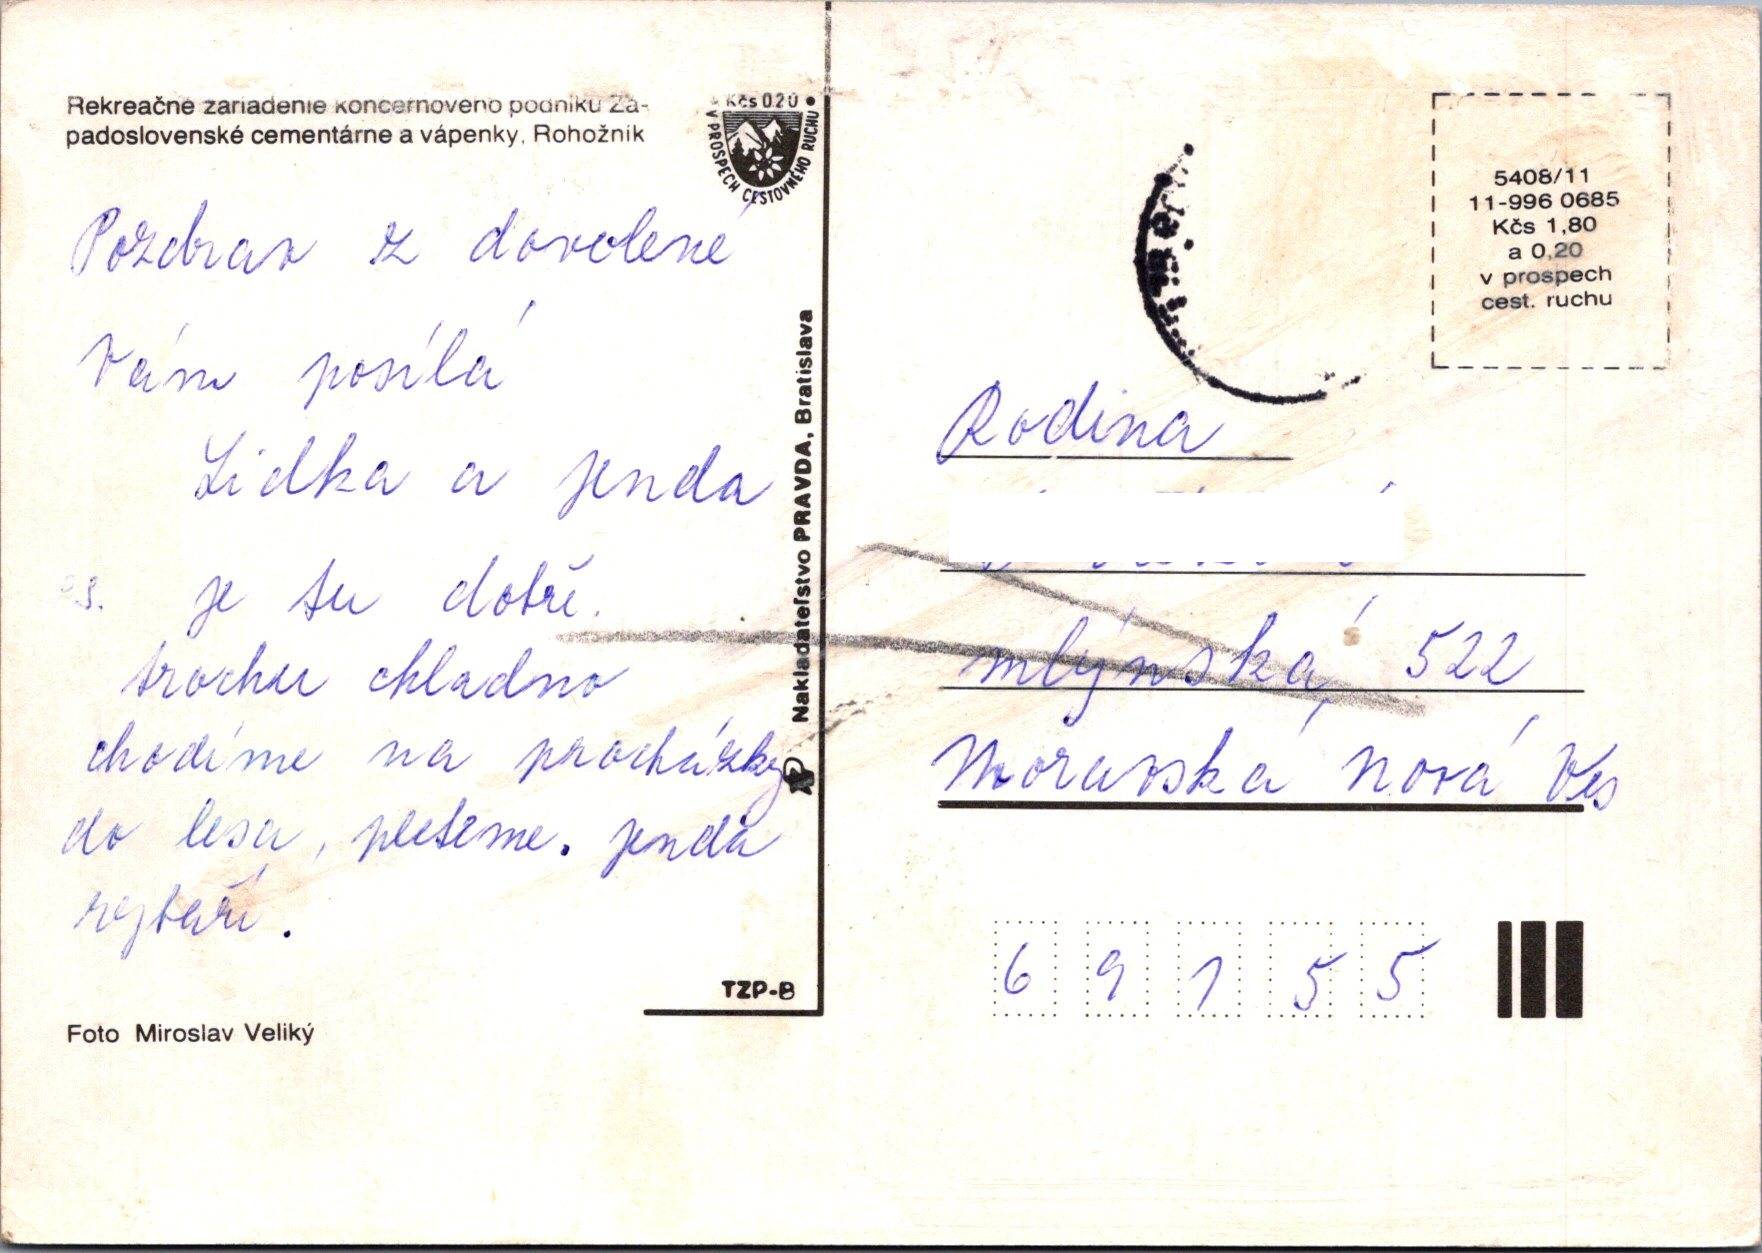 Rekreačné zariadenie koncernového podniku Zá-
padoslovenské cementárne a vápenky, Rohožník
Kčs 0.20
V PROSPECH CESTOVNÉHO RUCHU
Pozdrav z dovolené
Vám posílá
Lidka a jenda
je tu dobře.
trochu chladno
chodíme na procházky
do lesa, pleteme. jenda
rybaří.
TZP-B
Foto Miroslav Veliký
Nakladateľstvo PRAVDA, Bratislava
5408/11
11-996 0685
Kčs 1,80
a 0,20
v prospech
cest. ruchu
Rodina
mlýnská 522
Moravská nová Ves
691 55